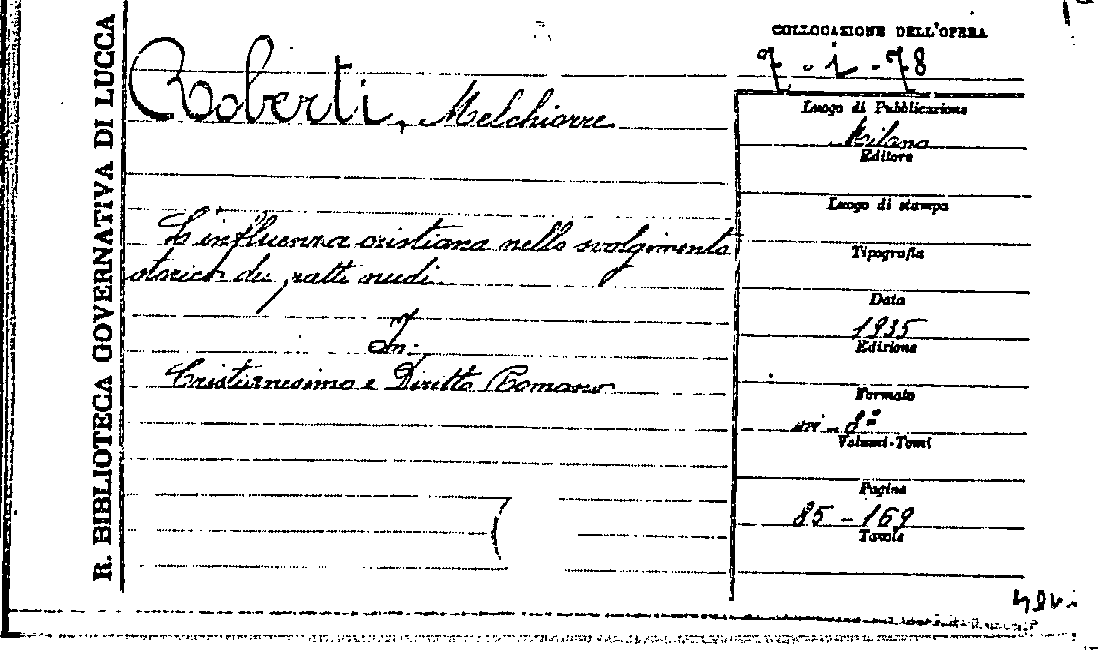 R. BIBLIOTECA GOVERNATIVA DI LUCCA
Roberti, Melchiorre
L'influenza cristiana nello svolgimento
storico dei patti nudi.
In:
Cristianesimo e Diritto Romano
COLLOCAZIONE DELL'OPERA
7 - i - 78
Luogo di Pubblicazione
Milano
Editore
Luogo di stampa
Tipografia
Data
1935
Edizione
Formato
in-8º
Volumi-Tomi
Pagine
85 - 169
Tavole